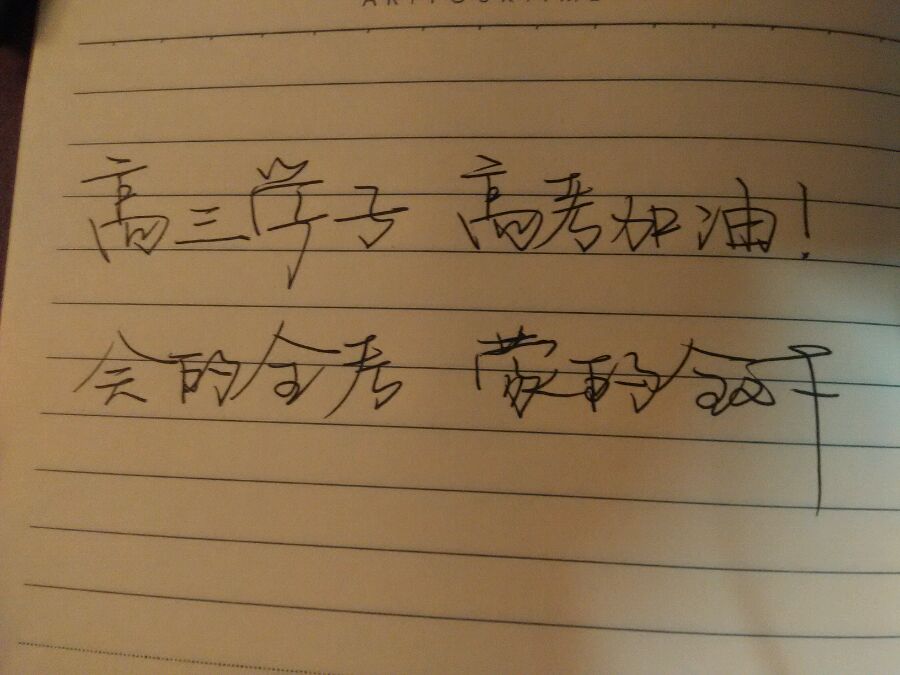 高三学子 高考加油!
会的全考 蒙的全对